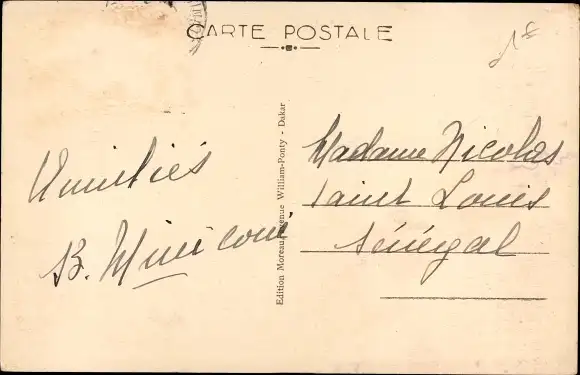 CARTE POSTALE
Amitiés
B. Miniconi
Edition Moreau, Avenue William-Ponty - Dakar
Madame Nicolas
Saint Louis
Sénégal